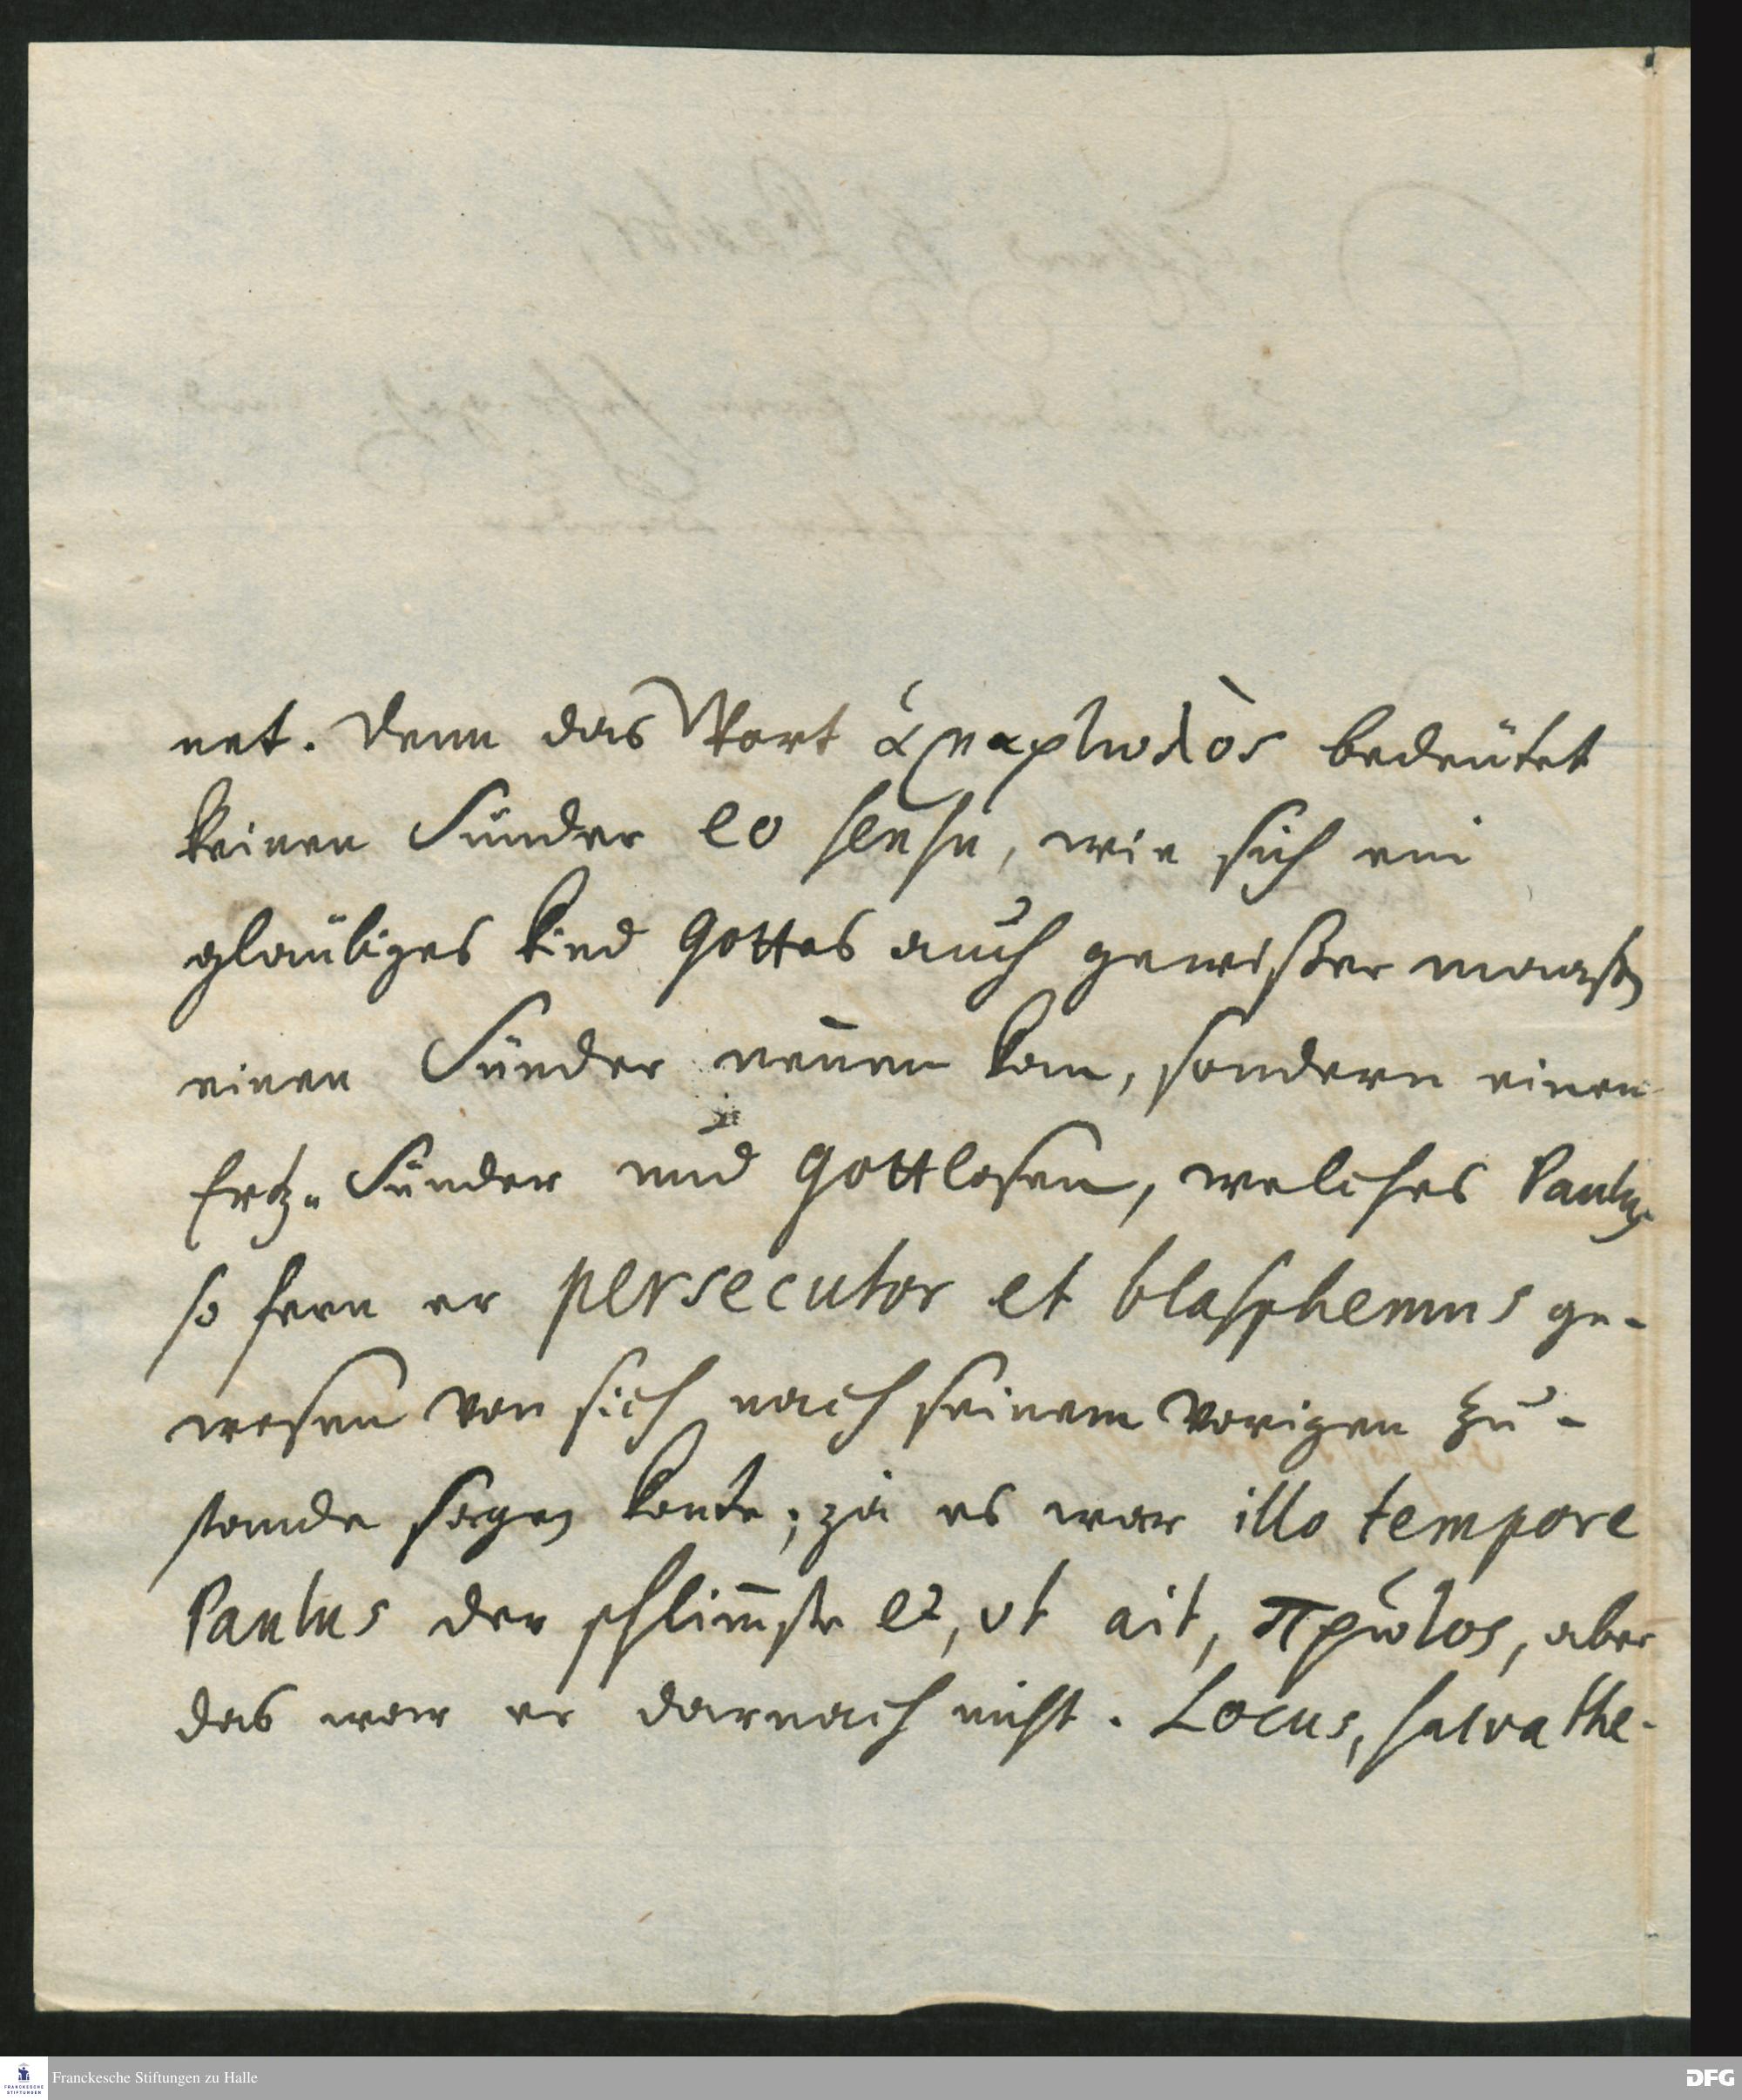 net. Denn das Wort ἁμαρτωλὸς bedeütet
keinen Sünder eo sensu, wie sich ein
glaubiges Kind Gottes auch gewißer maaßen
einen Sünder nen̄en kan, sondern einen
Ertz-Sünder und Gottlosen, welches Paulus
so fern er persecutor et blasphemus ge-
wesen von sich nach seinem vorigen Zu-
stande sagen konte; ja es war illo tempore
Paulus der schlim̄ste et, ut ait, πρῶτος, aber
das war er darnach nicht. Locus, salva the-
Franckesche Stiftungen zu Halle
FRANCKESCHE STIFTUNGEN
DFG